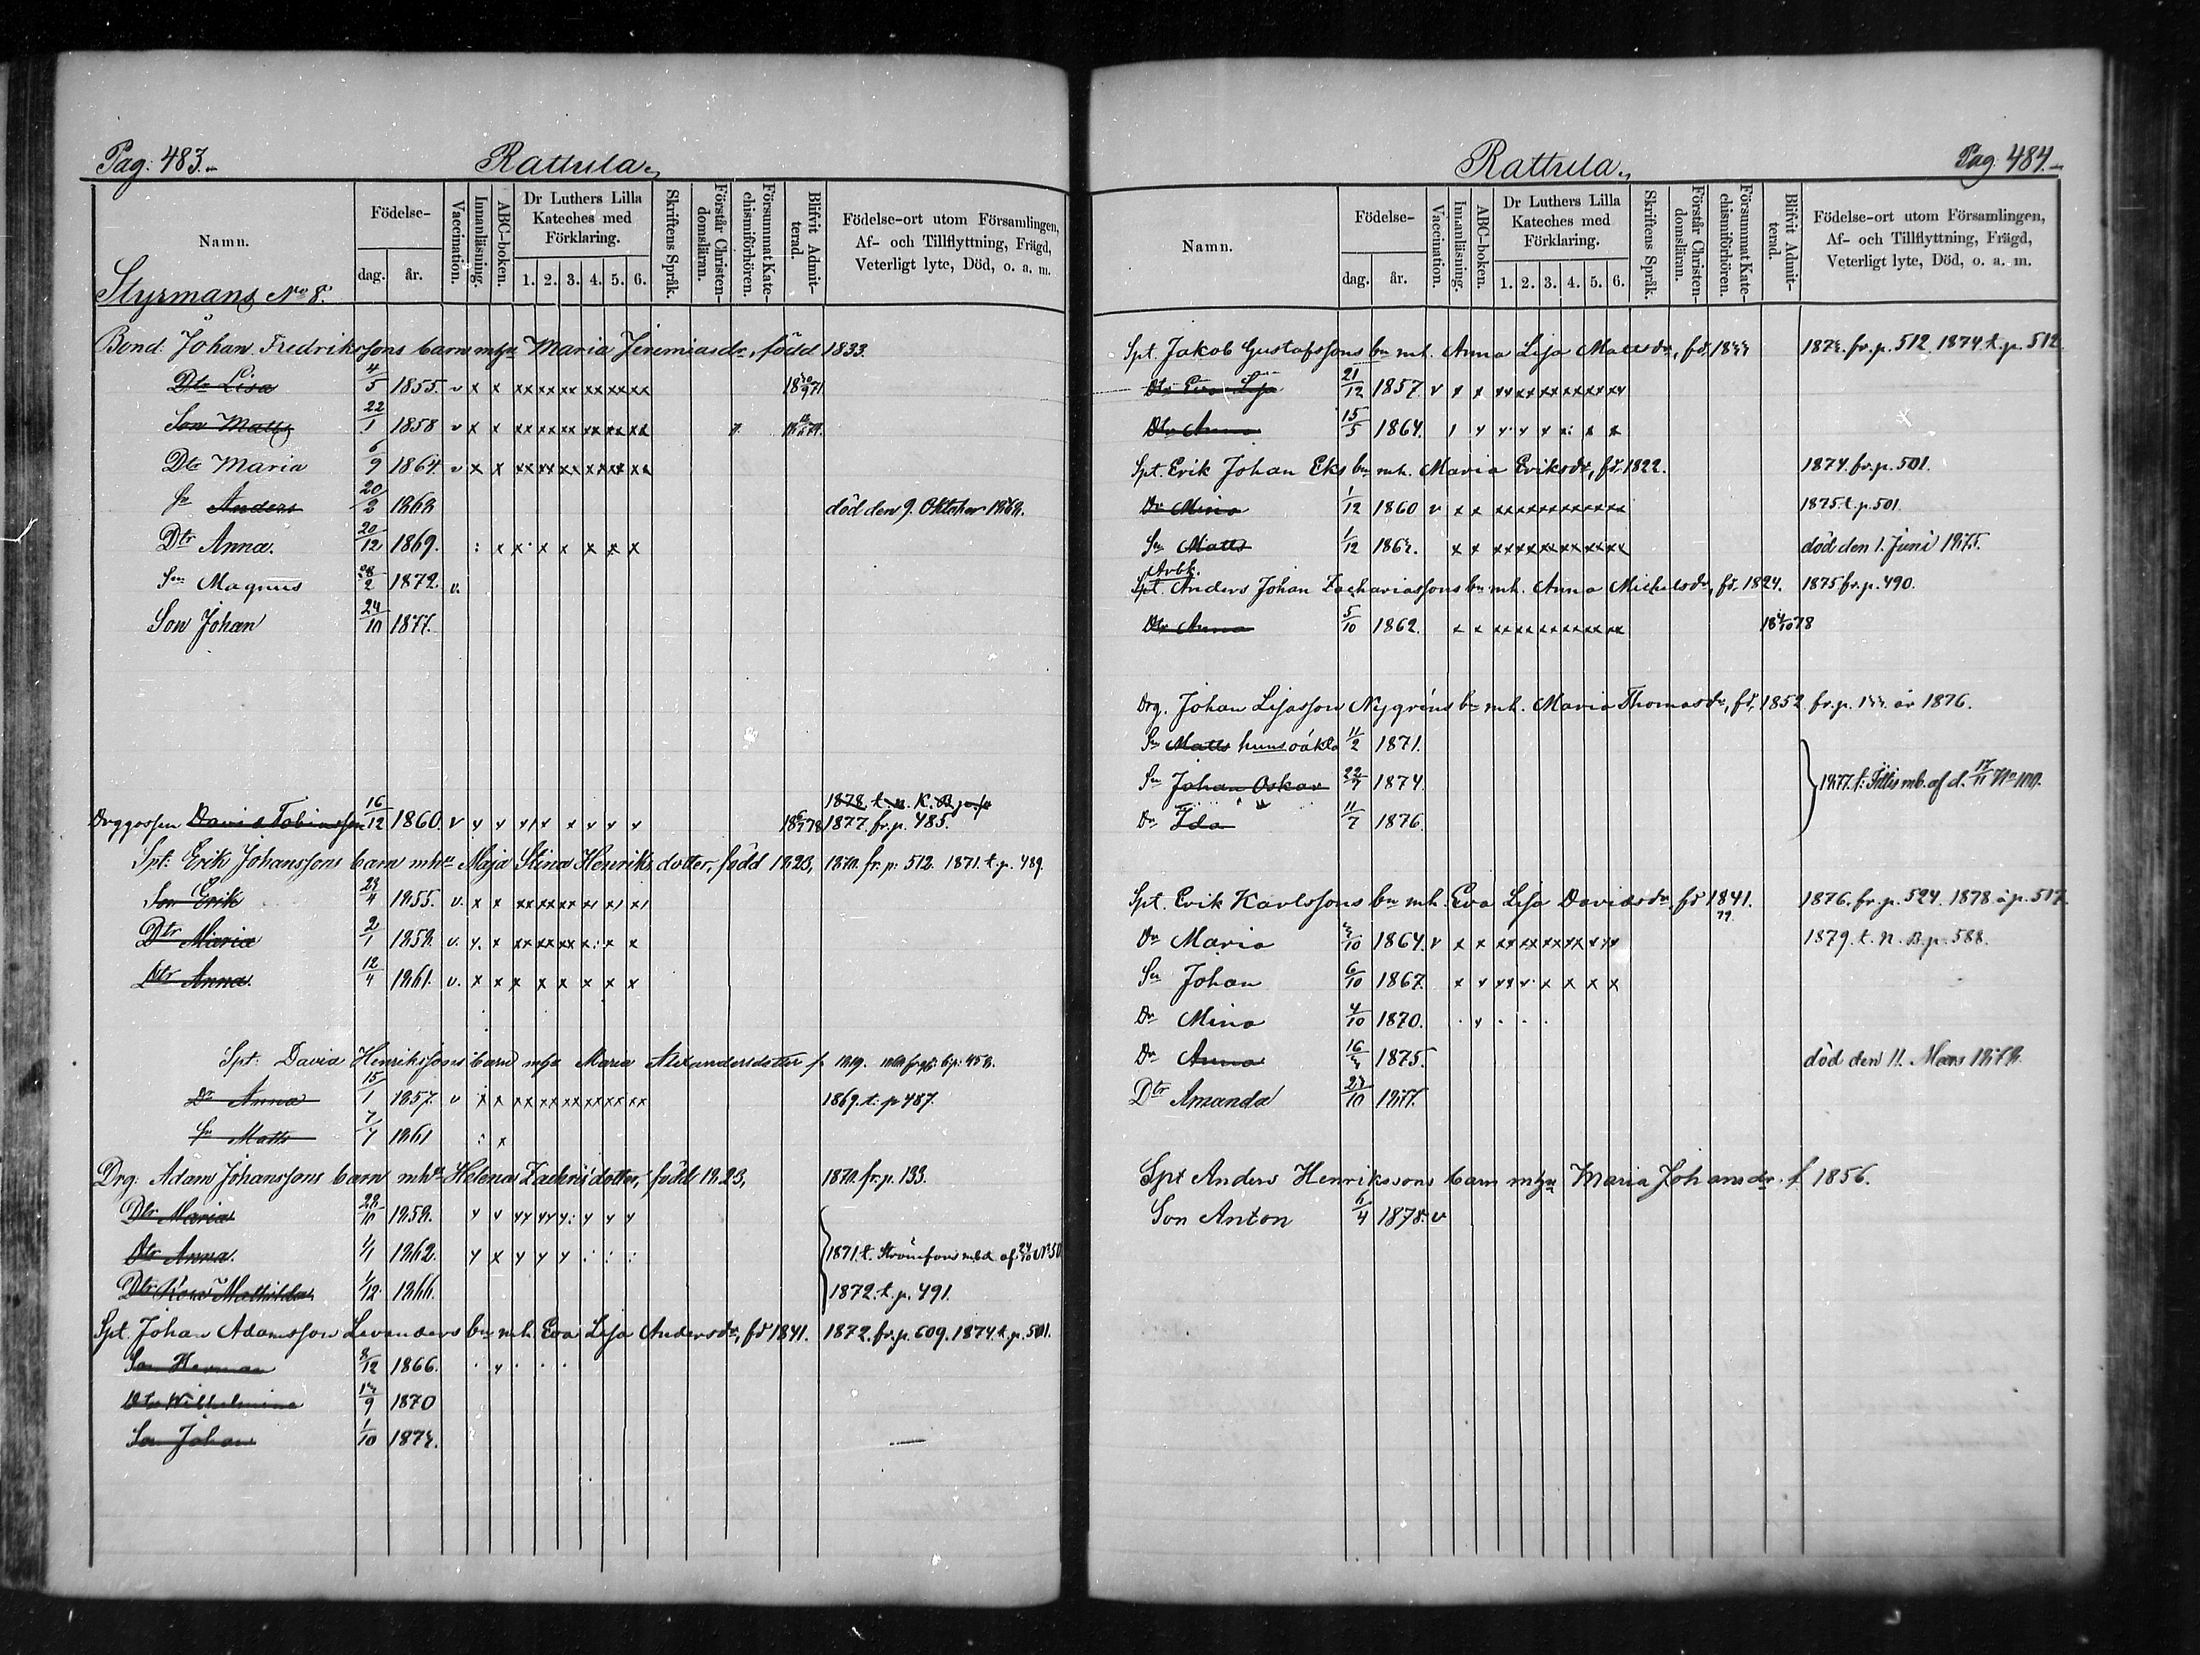 Pag: 483.
Rattula.
Namn.
Födelse-
dag.
år.
Vaccination.
Innanläsning.
ABC-boken.
Dr Luthers Lilla Kateches med Förklaring.
1. 2. 3. 4. 5. 6.
Skriftens Språk.
Förstår Christendomsläran.
Försummat Katechismiförhören.
Blifvit Admitterad.
Födelse-ort utom Församlingen,
Af- och Tillflyttning, Frägd,
Veterligt lyte, Död, o. a. m.
Styrmans No 8.
Bond. Johan Fredrikssons barn m hu Maria Jeremiasdr, född 1833.
Dtr Lisa 4/5 1855. v x x xx xx xx xx xx xx
Son Matts 22/1 1858 v x x xx xx xx xx xx xx
Dtr Maria 6/9 1864 v x x xx xx xx xx xx xx
Sn Anders 20/2 1868 död den 9. Oktober 1868.
Dtr Anna. 20/12 1869. : x x x x x x x
Sn Magnus 28/2 1872. v.
Son Johan 24/10 1877.
1878 t. n. K. B.
Drggossen David Tobiasson 16/12 1860. v 1877. fr. p. 485.
Spt. Erik Johanssons barn mhu Maja Stina Henriksdotter, född 1823, 1870. fr. p. 512. 1871. t. p. 489.
Son Erik 1855. v. x x
Dtr Maria 2/1 1858. v.
Dtr Anna. 12/4 1861. v. x x x x x x x x
Spt. David Henrikssons barn mhu Maria Alexandersdotter f. 1819.
Dr Anna 15/1 1857. v x x xx xx xx xx xx xx 1869. t. p 487.
Sn Matts 7/7 1861 : x
Drg: Adam Johanssons barn mhu Helena Zachrisdotter, född 1823, 1870. fr. p. 133.
Dtr Maria 28/10 1858.
Dtr Anna. 1/1 1862. 1871. t. Strömfors
Dtr Mathilda 1/12 1866. 1872. t. p. 491.
Spt. Johan Adamsson Levanders bn mh. Eva Lisa Andersdr, fd 1841. 1872. fr. p. 609. 1874. t. p. 501.
Son Herman 8/12 1866.
Dtr Wilhelmina 1870
Son Johan 1/10 1873.
Rattula.
Pag. 484.
Namn.
Födelse-
dag.
år.
Vaccination.
Innanläsning.
ABC-boken.
Dr Luthers Lilla Kateches med Förklaring.
1. 2. 3. 4. 5. 6.
Skriftens Språk.
Förstår Christendomsläran.
Försummat Katechismiförhören.
Blifvit Admitterad.
Födelse-ort utom Församlingen,
Af- och Tillflyttning, Frägd,
Veterligt lyte, Död, o. a. m.
Spt. Jakob Gustafssons bn mh. Anna Lisa Mattsdr, fd. 1833 1873. fr. p. 512. 1874. t. p. 512
Dtr Eva Lisa 21/12 1857. v x x xx xx xx xx xx xx
Dtr Anna 15/5 1864.
Spt. Erik Johan Eks bn mh. Maria Eriksdr, fd. 1822. 1874. fr. p. 501.
Dr Mina 1/12 1860 v x x xx xx xx xx xx xx 1875. t. p. 501.
Sn Matts 1/12 1863. x x xx xx xx xx xx xx död den 1. Juni 1875.
Arbk.
Spt. Anders Johan Zachariassons bn mh. Anna Michelsdr, fd. 1824. 1875 fr. p. 490.
Dtr Anna 5/10 1862. x x xx xx xx xx xx xx
Drg. Johan Lisasson Nygréns bn mh. Maria Thomasdr, fd. 1852 fr. p. 133. år 1876.
Sn Matts hans oäkta 11/2 1871.
Sn Johan Oskar 22/7 1874. 1877. t. mb. af d. 17/11 No 100.
Dr Ida 11/7 1876.
Spt. Erik Karlssons bn mh. Eva Lisa Davidsdr, fd 1841. 1876. fr. p. 524. 1878. å p. 517.
Dr Maria 3/10 1864. v x x 1879. t. N. B. p. 588.
Sn Johan 6/10 1867.
Dr Mina 4/10 1870.
Dr Anna 16/3 1875. död den 11. Mars 1878.
Dtr Amanda 23/10 1877.
Spt Anders Henrikssons barn mhu Maria Johansdr. f 1856.
Son Anton 6/4 1878. v